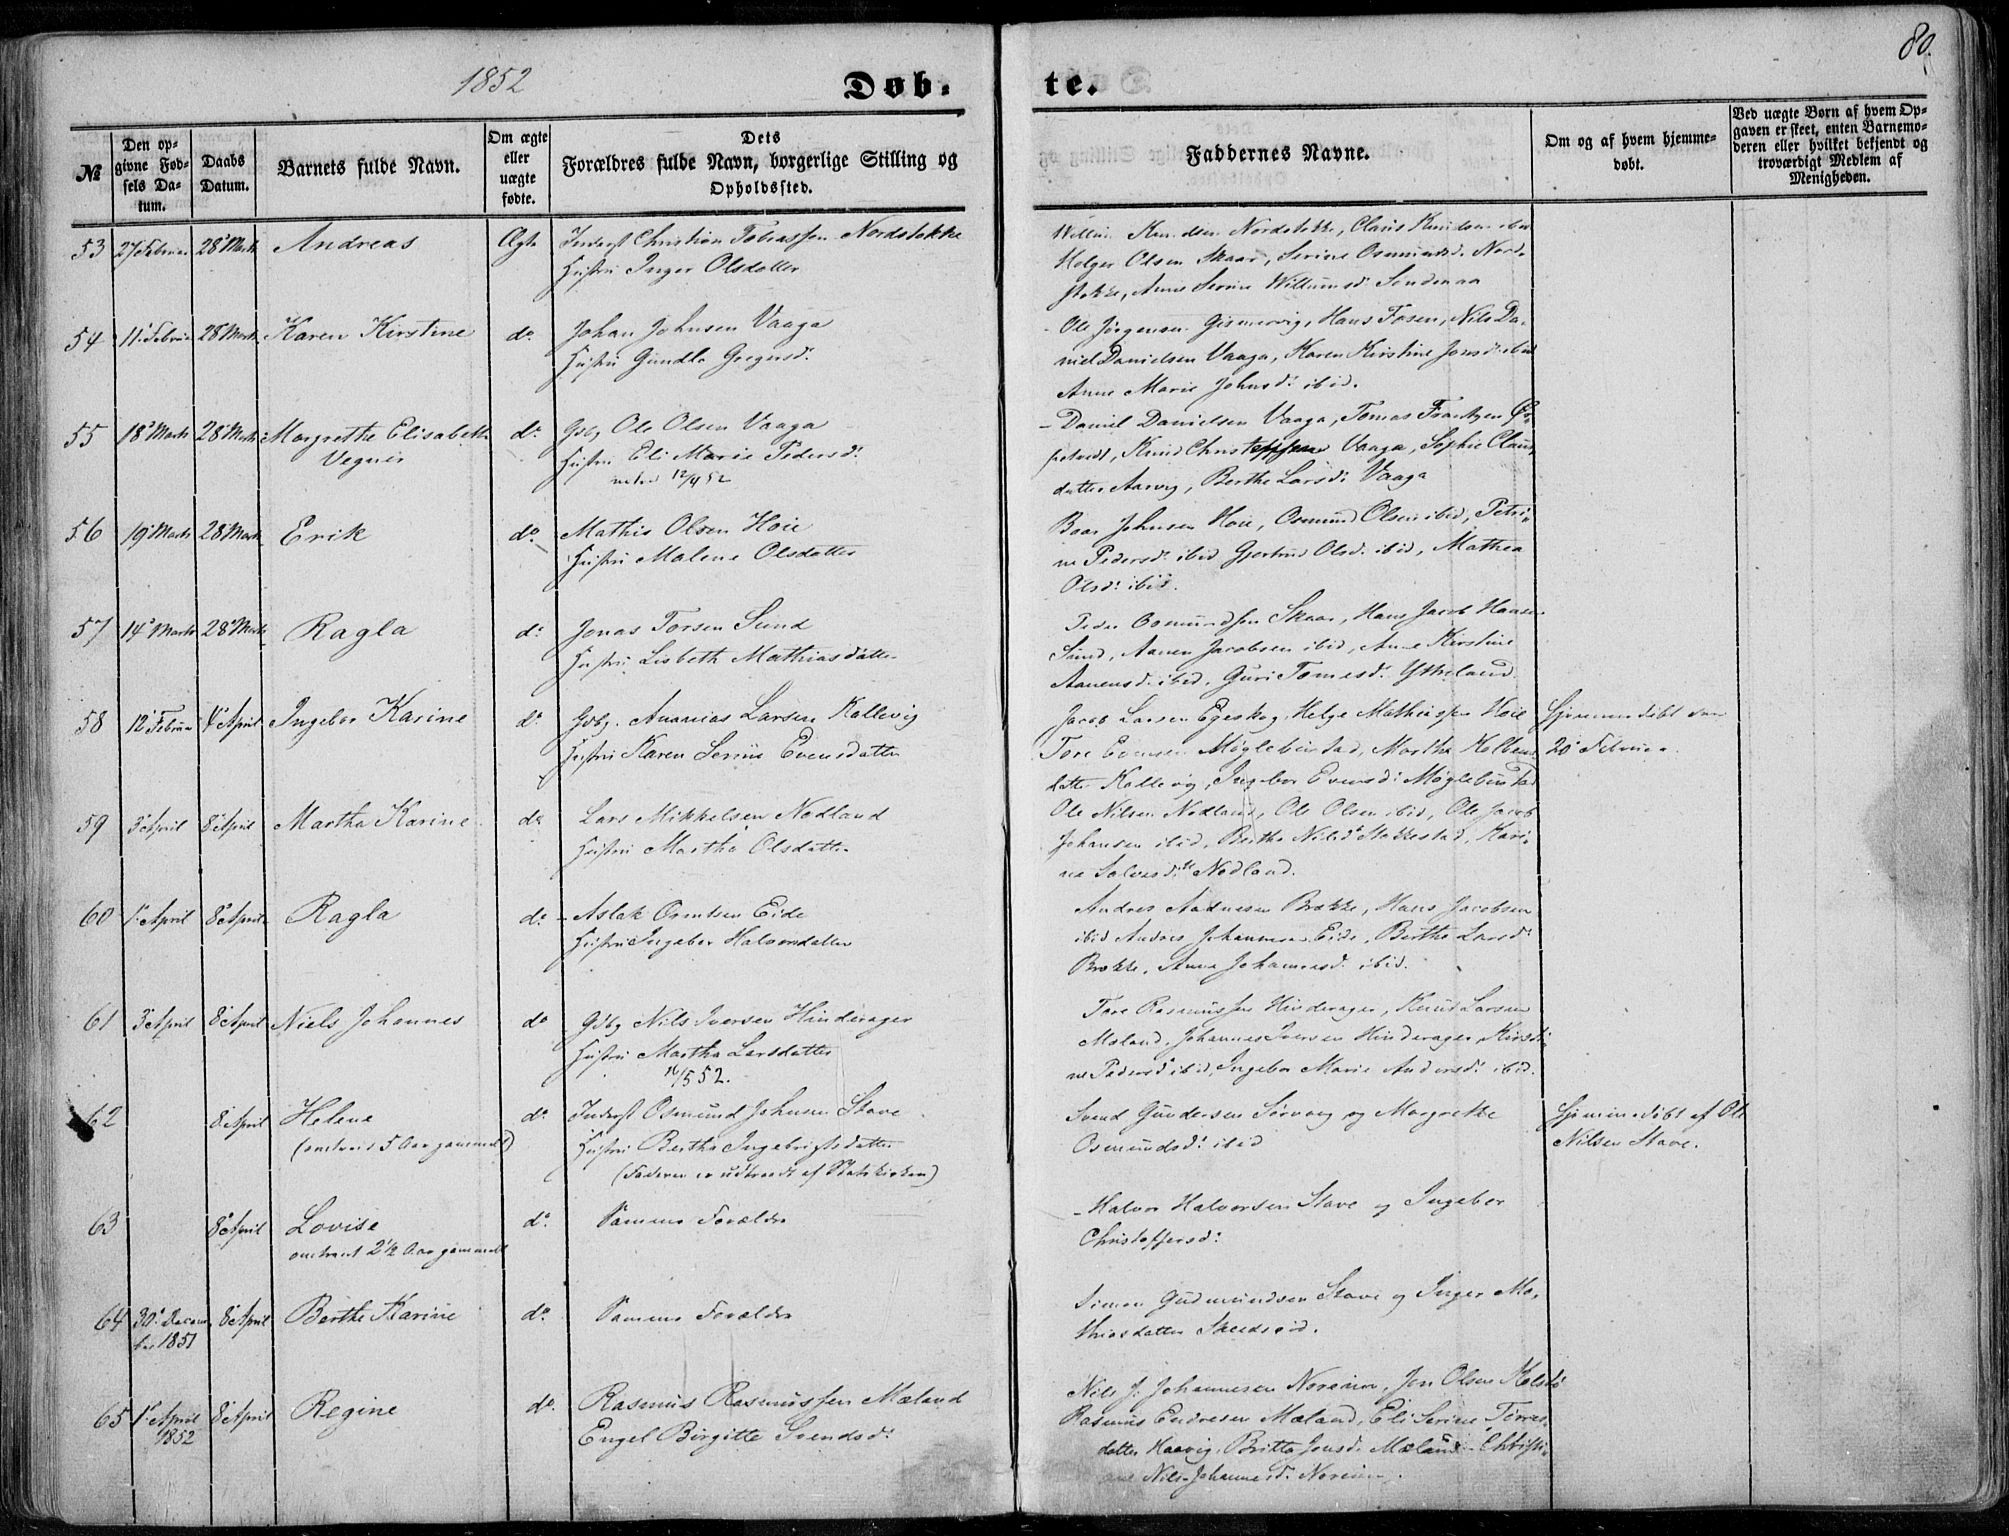 80.
1852
Døb-
te.
№
Den op-
givne Fød-
sels Da-
tum.
Daabs
Datum.
Barnets fulde Navn.
Om ægte
eller
uægte
fødte.
Dets
Forældres fulde Navn, borgerlige Stilling og
Opholdssted.
Faddernes Navne.
Om og af hvem hjemme-
døbt.
Ved uægte Børn af hvem Op-
gaven er skeet, enten Barnemo-
deren eller hvilket bekjendt og
troværdigt Medlem af
Menigheden.
53 27 Februar 28 Marts Andreas Ægte Inderst Christian Tobiassen Nordstokke
Hustru Inger Olsdatter
Knudsen Nordstokke, Claus Knudsen ibid
Holger Olsen Skaar, Serine Osmundsd. Nord-
stokke, Anne Serine Willumsd. Sondenaa
54 11 Februar 28 Marts Karen Kirstine do Johan Johnsen Vaaga
Hustru Gundla Gregersd:
Ole Jørgensen Gismervig, Hans Fosen, Nils Da-
niel Danielsen Vaaga, Karen Kirstine Jonsd: ibid
Anne Marie Johnsd: ibid.
55 18 Marts 28 Marts Margrethe Elisabeth do Gdbg Ole Olsen Vaaga
Vegner
Hustru Eli Marie Pedersd:
12/4 52
Daniel Danielsen Vaaga, Tomas Frantzen
Knud Christophersen Vaaga, Sophie Claus-
datter Aarvig, Berthe Larsd: Vaaga
56 19 Marts 28 Marts Erik do Mathis Olsen Hoie
Hustru Malene Olsdatter
Johnsen Hoie, Osmund Olsen ibid, Petri-
ne Pedersd: ibid Gjertrud Olsd: ibid, Mathea
Olsd: ibid.
57 14 Marts 28 Marts Ragla do Jonas Torsen Sund
Hustru Lisbeth Mathiasdatter
Peder Osmundsen Skaar, Hans Jacob Hansen
Sund, Aanen Jacobsen ibid, Anne Kirstine
Aanensd. ibid. Guri Tomesd: Ytreland
58 12 Februar April Ingebor Karine do Gdbg. Ananias Larsen Kallevig
Hustru Karen Serine Evensdatter
Jacob Larsen Egeskog, Helge Mathiassen Hoie
Tore Evensen Møglebustad, Martha Kolbens-
datter Kallevig, Ingebor Evensd: Møglebustad
Hjemmedøbt den
20 Februar.
59 3 April 8 April Martha Karine do Lars Mikkelsen Nodland
Hustru Martha Olsdatter
Ole Nilsen Nodland, Ole Olsen ibid, Ole Jacob
Johansen ibid, Berthe Nilsd: Stokkestad, Kari-
ne Nodland.
60 1 April 8 April Ragla do Aslak Osmtsen Eide
Hustru Ingebor Halvorsdatter
Andres Aadnesen Brekke, Hans Jacobsen
ibid Andres Johannesen Eide, Berthe Larsd:
Brekke, Anne Johannesd: ibid.
61 3 April 8 April Niels Johannes do Gdbg Nils Iversen Hinderager
Hustru Martha Larsdatter
/5 52.
Tore Rasmussen Hinderager, Knud Larsen
Mæland, Johannes Iversen Hinderager, Kirsti-
ne Pedersd: ibid, Ingebor Marie Andersd: ibid.
62 8 April Helene do Inderst Osmund Johnsen Stave
(omtrent 5 Aar gammel)
Hustru Berthe Ingebrigtsdatter
(Faderen er udtraadt af Statskirken)
Svend Gundersen Sørvaag og Margrethe
Osmundsd: ibid
Hjemmedøbt af Ole
Nilsen Stave.
63 8 April Lovise do Samme Forældre
omtrent 2 1/2 Aar gammel
Halvor Halvorsen Stave og Ingebor
Christoffersd:
64 30 Decem- 8 April Berthe Karine do Samme Forældre
ber 1851
Simon Gudmundsen Stave og Inger Ma-
thiasdatter
65 1 April 8 April Regine do Rasmus Rasmussen Mæland
1852
Engel Birgitte Svendsd:
Nils J: Johannesen Noreim, Jon Olsen
Rasmus Endresen Mæland, Eli Serine Torres-
datter Haavig, Britta Jonsd: Mæland Christi-
ane Nils-Johannesd. Noreim.